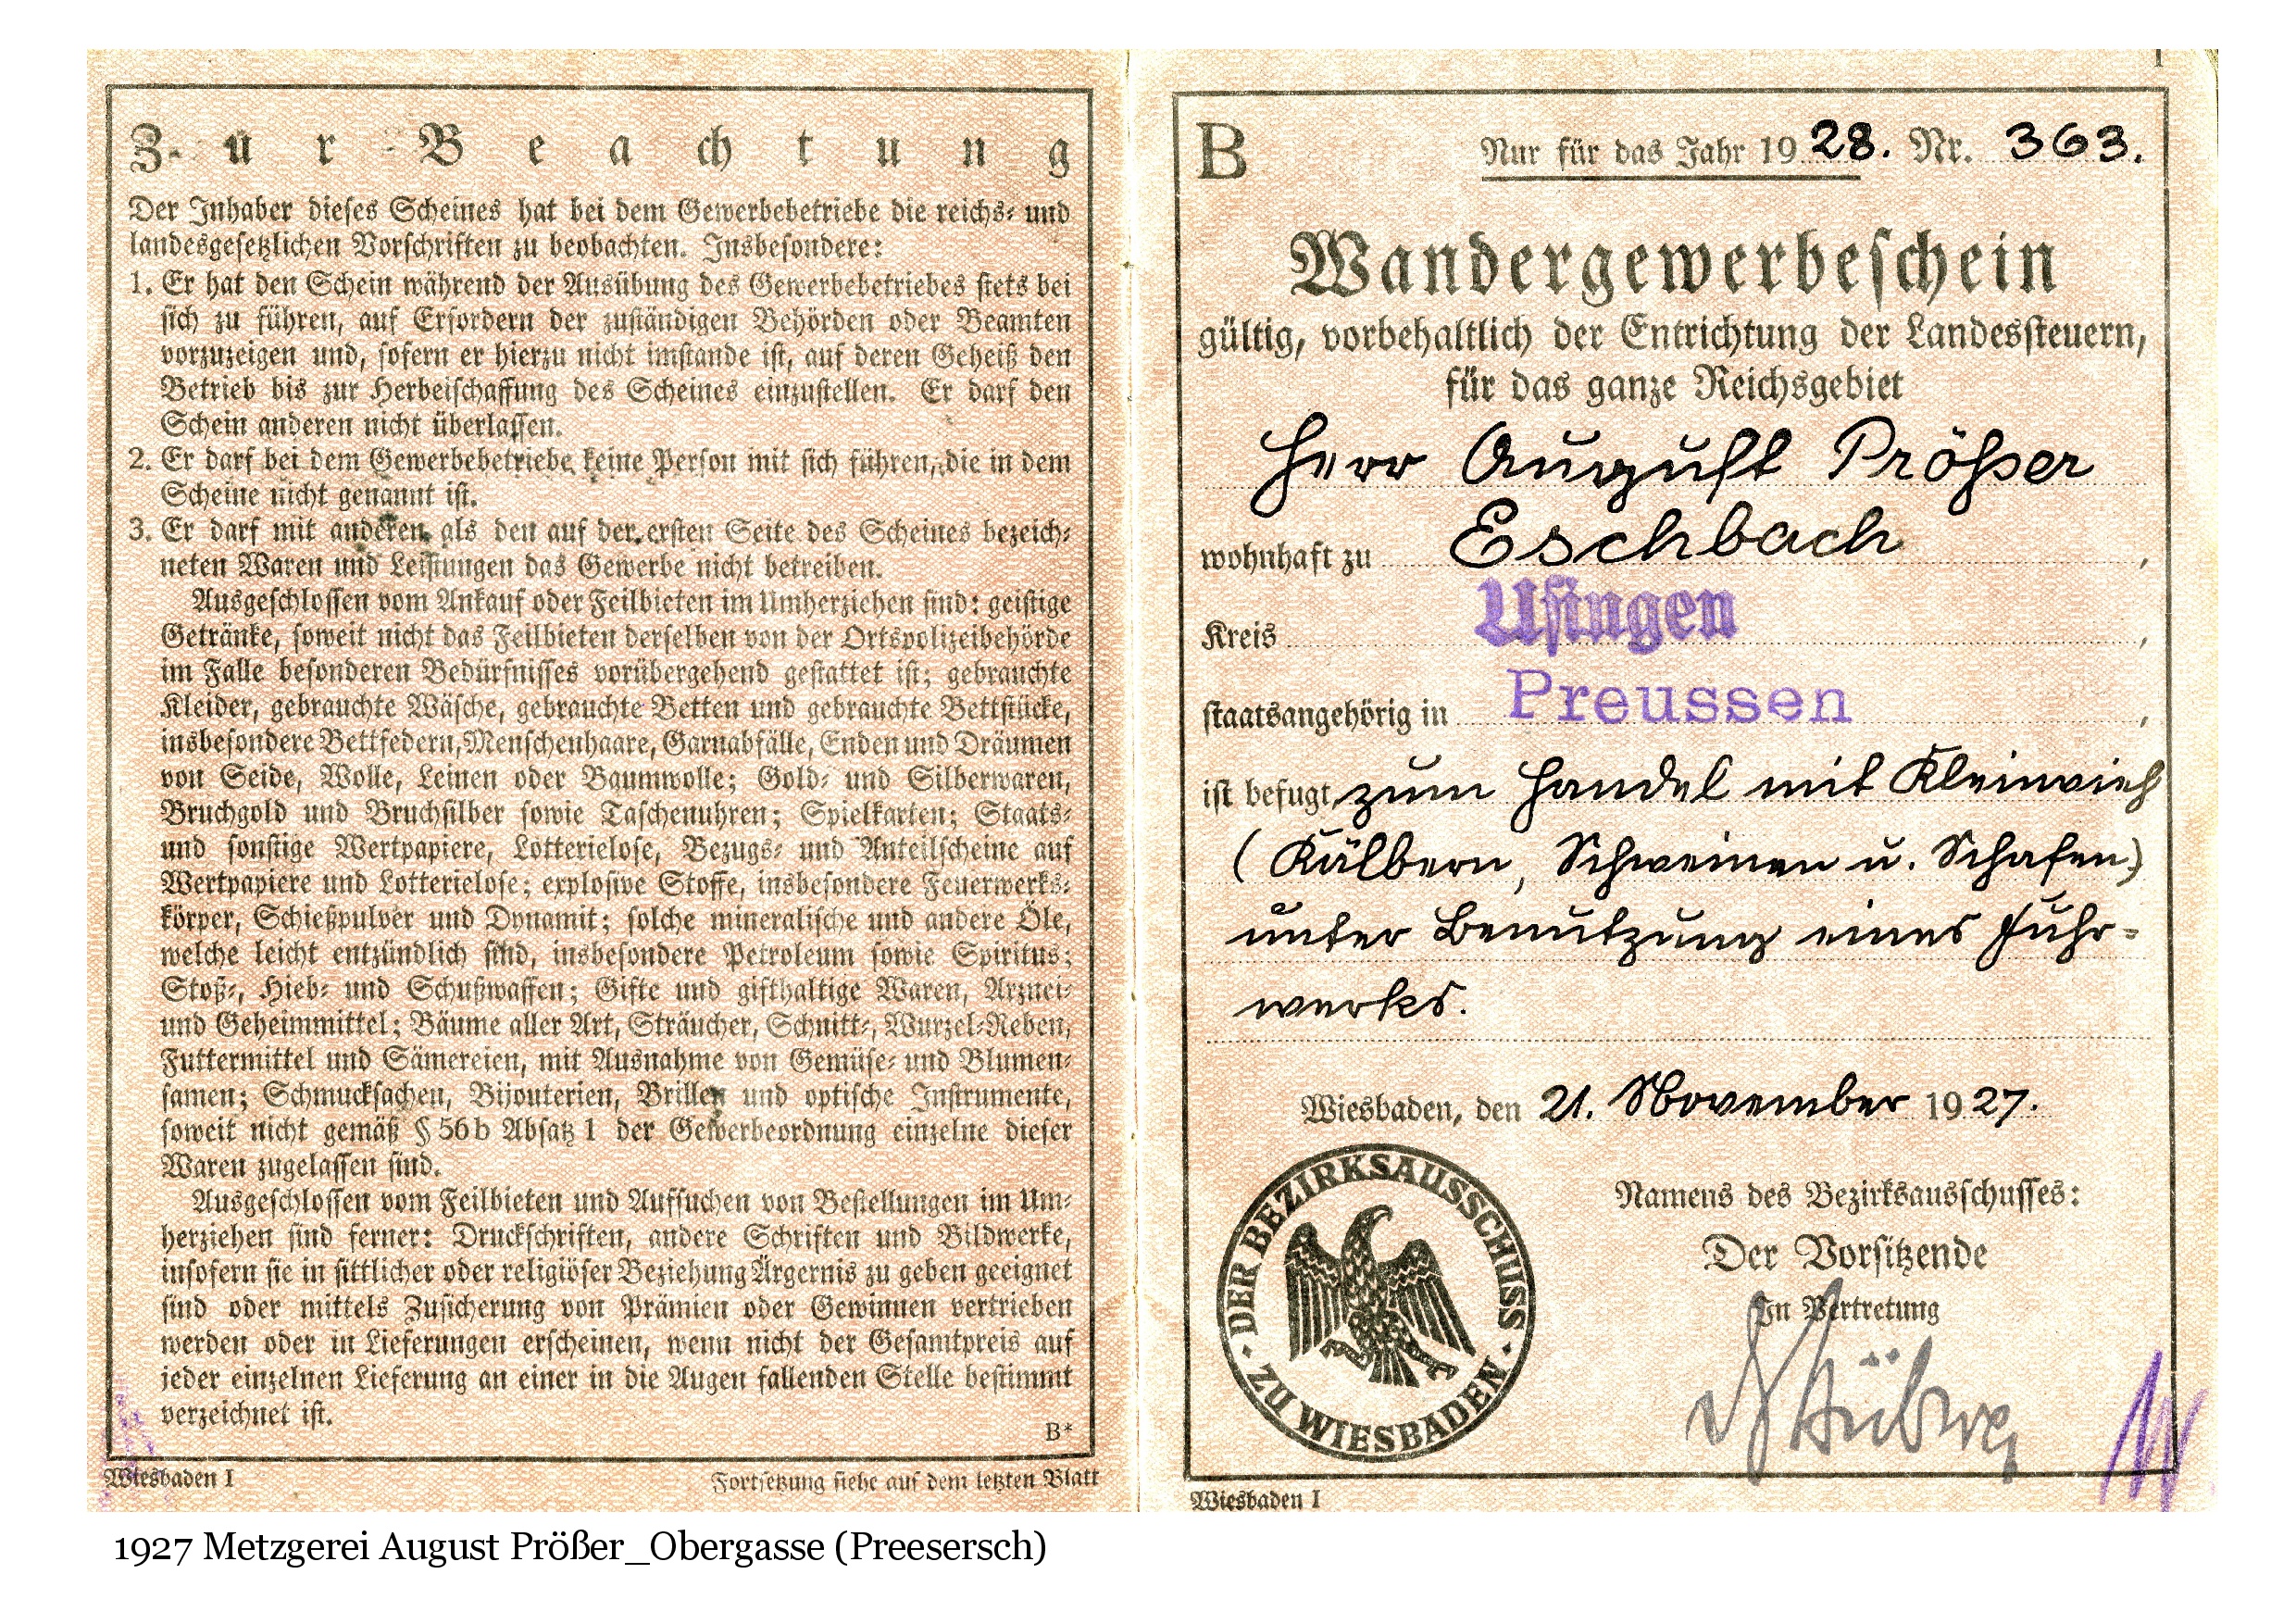 Zur Beachtung
Der Inhaber dieses Scheines hat bei dem Gewerbebetriebe die reichs- und
landesgesetzlichen Vorschriften zu beobachten. Insbesondere:
1. Er hat den Schein während der Ausübung des Gewerbebetriebes stets bei
sich zu führen, auf Erfordern der zuständigen Behörden oder Beamten
vorzuzeigen und, sofern er hierzu nicht imstande ist, auf deren Geheiß den
Betrieb bis zur Herbeischaffung des Scheines einzustellen. Er darf den
Schein anderen nicht überlassen.
2. Er darf bei dem Gewerbebetriebe keine Person mit sich führen, die in dem
Scheine nicht genannt ist.
3. Er darf mit anderen als den auf der ersten Seite des Scheines bezeich-
neten Waren und Leistungen das Gewerbe nicht betreiben.
Ausgeschlossen vom Ankauf oder Feilbieten im Umherziehen sind: geistige
Getränke, soweit nicht das Feilbieten derselben von der Ortspolizeibehörde
im Falle besonderen Bedürfnisses vorübergehend gestattet ist; gebrauchte
Kleider, gebrauchte Wäsche, gebrauchte Betten und gebrauchte Bettstücke,
insbesondere Bettfedern, Menschenhaare, Garnabfälle, Enden und Dräumen
von Seide, Wolle, Leinen oder Baumwolle; Gold- und Silberwaren,
Bruchgold und Bruchsilber sowie Taschenuhren; Spielkarten; Staats-
und sonstige Wertpapiere, Lotterielose, Bezugs- und Anteilscheine auf
Wertpapiere und Lotterielose; explosive Stoffe, insbesondere Feuerwerks-
körper, Schießpulver und Dynamit; solche mineralische und andere Öle,
welche leicht entzündlich sind, insbesondere Petroleum sowie Spiritus;
Stoß-, Hieb- und Schußwaffen; Gifte und gifthaltige Waren, Arznei-
und Geheimmittel; Bäume aller Art, Sträucher, Schnitt-, Wurzel-Reben,
Futtermittel und Sämereien, mit Ausnahme von Gemüse- und Blumen-
samen; Schmucksachen, Bijouterien, Brillen und optische Instrumente,
soweit nicht gemäß § 56 b Absatz 1 der Gewerbeordnung einzelne dieser
Waren zugelassen sind.
Ausgeschlossen vom Feilbieten und Aufsuchen von Bestellungen im Um-
herziehen sind ferner: Druckschriften, andere Schriften und Bildwerke,
insofern sie in sittlicher oder religiöser Beziehung Ärgernis zu geben geeignet
sind oder mittels Zusicherung von Prämien oder Gewinnen vertrieben
werden oder in Lieferungen erscheinen, wenn nicht der Gesamtpreis auf
jeder einzelnen Lieferung an einer in die Augen fallenden Stelle bestimmt
verzeichnet ist.
B*
Wiesbaden I
Fortsetzung siehe auf dem letzten Blatt
1
B
Nur für das Jahr 1928. Nr. 363.
Wandergewerbeschein
gültig, vorbehaltlich der Entrichtung der Landessteuern,
für das ganze Reichsgebiet
Herr August Prößer
wohnhaft zu Eschbach,
Kreis Usingen,
staatsangehörig in Preussen,
ist befugt, zum Handel mit Kleinvieh
(Kälbern, Schweinen u. Schafen)
unter Benutzung eines Fuhr-
werks.
Wiesbaden, den 21. November 1927.
DER BEZIRKSAUSSCHUSS
ZU WIESBADEN
Namens des Bezirksausschusses:
Der Vorsitzende
In Vertretung
Wiesbaden I
1927 Metzgerei August Prößer_Obergasse (Preesersch)